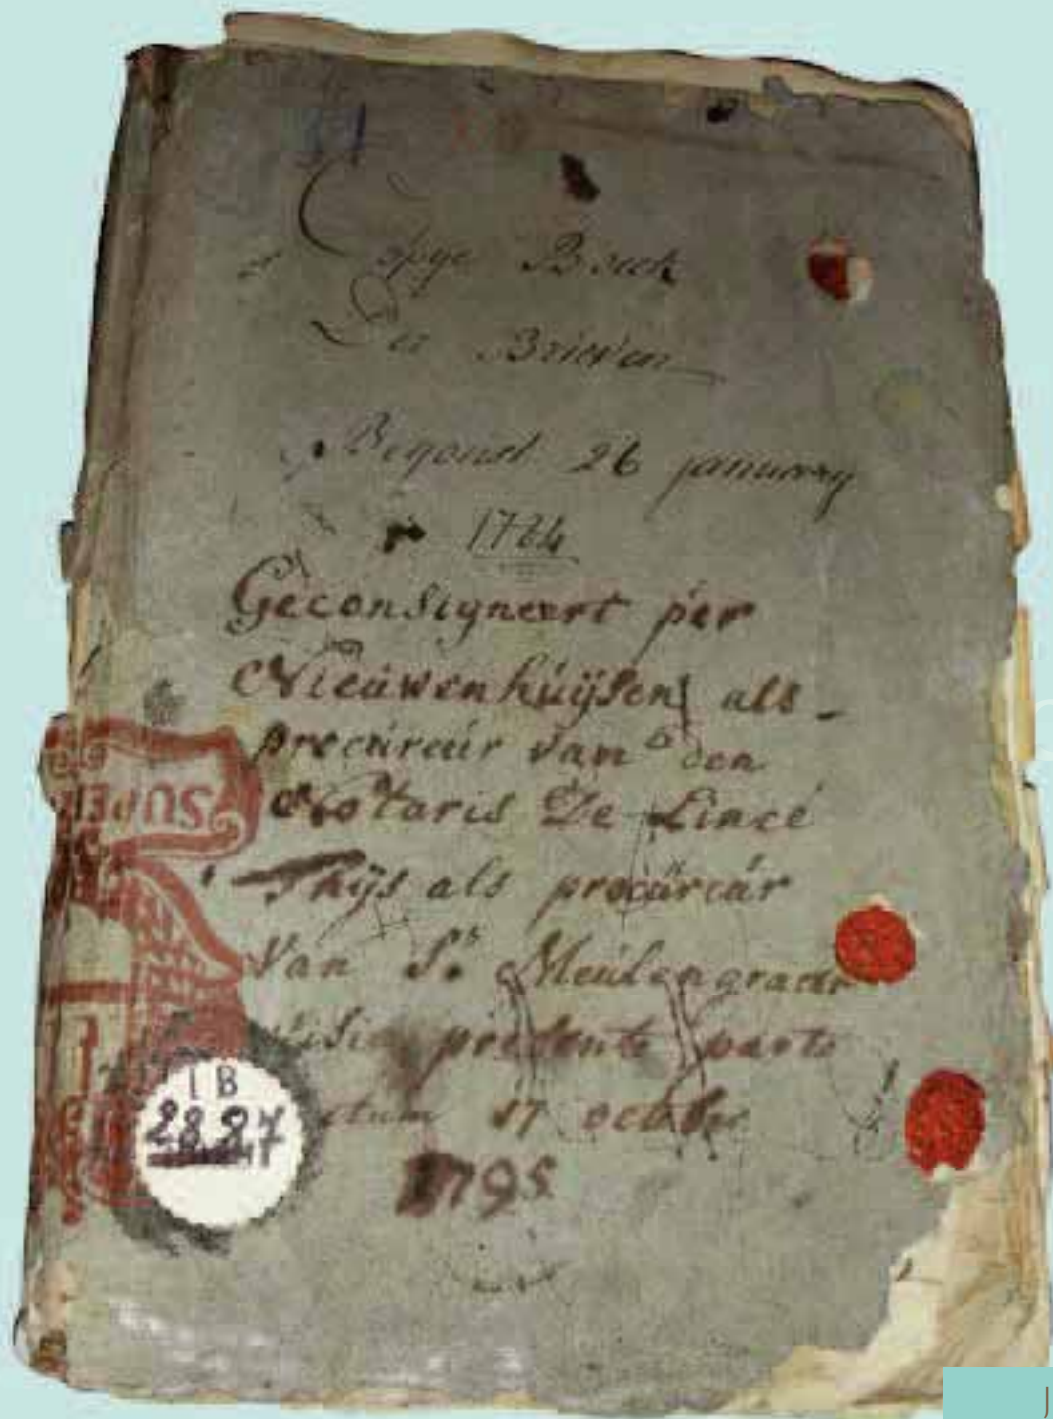 Copye Boeck
Der Brieven
Begonst 26 january
1784
Geconsigneert per
Nieuwenhuÿsen als
procúreúr van den
Notaris De Lincé
Thÿs als procúreúr
Van Sr Meúlengraeer
presente parte
17 october
1795
SUPER
IB
2827